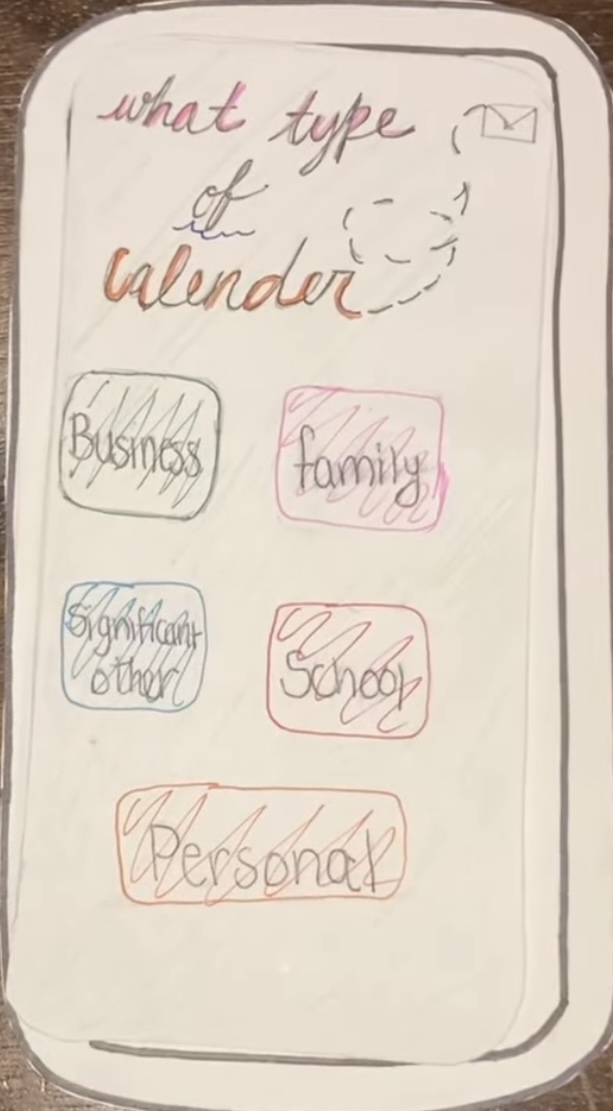 what type
of
Calender
Business
family
Significant
other
School
Personal